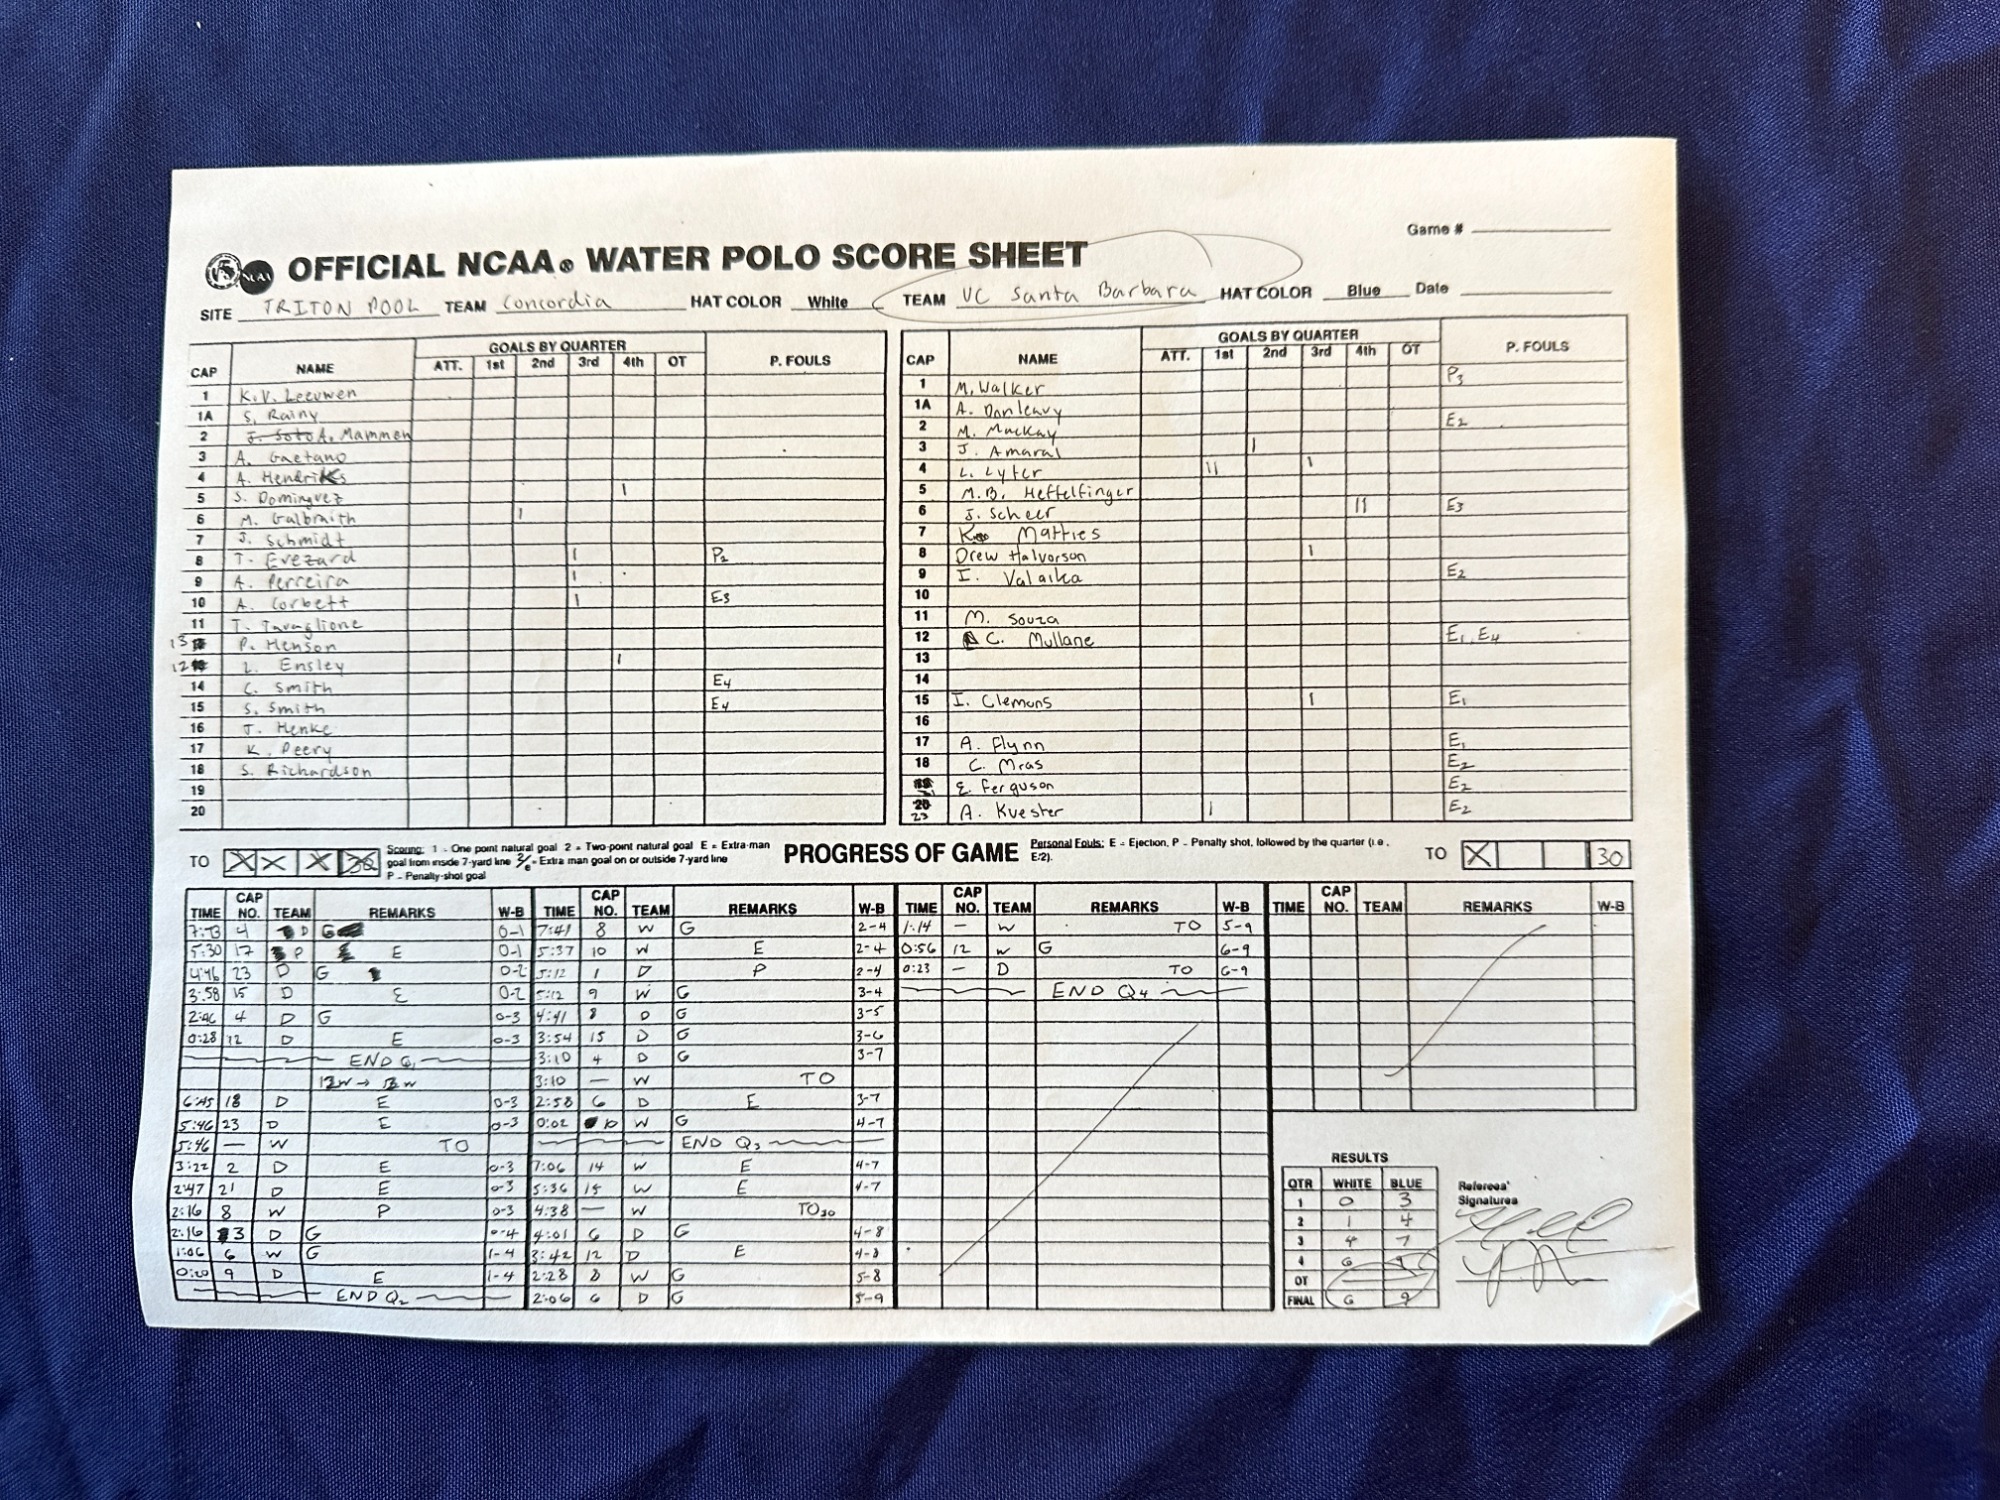 Game #
OFFICIAL NCAA® WATER POLO SCORE SHEET
SITE TRITON POOL TEAM Concordia HAT COLOR White TEAM UC Santa Barbara HAT COLOR Blue Date
CAP NAME GOALS BY QUARTER P. FOULS
ATT. 1st 2nd 3rd 4th OT
1 K.V. Leeuwen
1A S. Rainy
2 J. Soto A. Mammen
3 A. Gaetano
4 A. Hendriks
5 S. Dominguez I
6 M. Galbraith I
7 J. Schmidt
8 T. Evezard I P2
9 A. Perreira I
10 A. Corbett I E3
11 T. Tavaglione
13 P. Henson
12 L. Ensley I
14 C. Smith E4
15 S. Smith E4
16 J. Henke
17 K. Peery
18 S. Richardson
19
20
CAP NAME GOALS BY QUARTER P. FOULS
ATT. 1st 2nd 3rd 4th OT
1 M. Walker P3
1A A. Donleavy
2 M. Mackay E2
3 J. Amaral I
4 L. Lyter II I
5 M.B. Heffelfinger
6 J. Scheer II E3
7 K. Matties
8 Drew Halvorson I
9 I. Valaika E2
10
11 M. Souza
12 C. Mullane E1, E4
13
14
15 I. Clemons I E1
16
17 A. Flynn E1
18 C. Mras E2
E. Ferguson E2
20 23 A. Kuester I E2
TO X X X 30
Scoring: 1 - One point natural goal 2 = Two-point natural goal E = Extra-man
goal from inside 7-yard line 2/E = Extra man goal on or outside 7-yard line
P - Penalty-shot goal
PROGRESS OF GAME
Personal Fouls: E = Ejection, P - Penalty shot, followed by the quarter (i.e.,
E/2).
TO X 30
TIME CAP NO. TEAM REMARKS W-B
7:13 4 D G 0-1
5:30 17 D E 0-1
4:46 23 D G 0-2
3:58 15 D E 0-2
2:46 4 D G 0-3
0:28 12 D E 0-3
END Q1
12w → 13w
6:45 18 D E 0-3
5:46 23 D E 0-3
5:46 — W TO
3:22 2 D E 0-3
2:47 21 D E 0-3
2:16 8 W P 0-3
2:16 3 D G 0-4
1:06 6 W G 1-4
0:20 9 D E 1-4
END Q2
TIME CAP NO. TEAM REMARKS W-B
7:41 8 W G 2-4
5:37 10 W E 2-4
5:12 1 D P 2-4
5:12 9 W G 3-4
4:41 8 D G 3-5
3:54 15 D G 3-6
3:10 4 D G 3-7
3:10 — W TO
2:58 6 D E 3-7
0:02 10 W G 4-7
END Q3
7:06 14 W E 4-7
5:36 15 W E 4-7
4:38 — W TO30
4:01 6 D G 4-8
3:42 12 D E 4-8
2:28 8 W G 5-8
2:06 6 D G 5-9
TIME CAP NO. TEAM REMARKS W-B
1:14 — W TO 5-9
0:56 12 W G 6-9
0:23 — D TO 6-9
END Q4
TIME CAP NO. TEAM REMARKS W-B
RESULTS
QTR WHITE BLUE
1 0 3
2 1 4
3 4 7
4 6 9
OT
FINAL 6 9
Referees'
Signatures